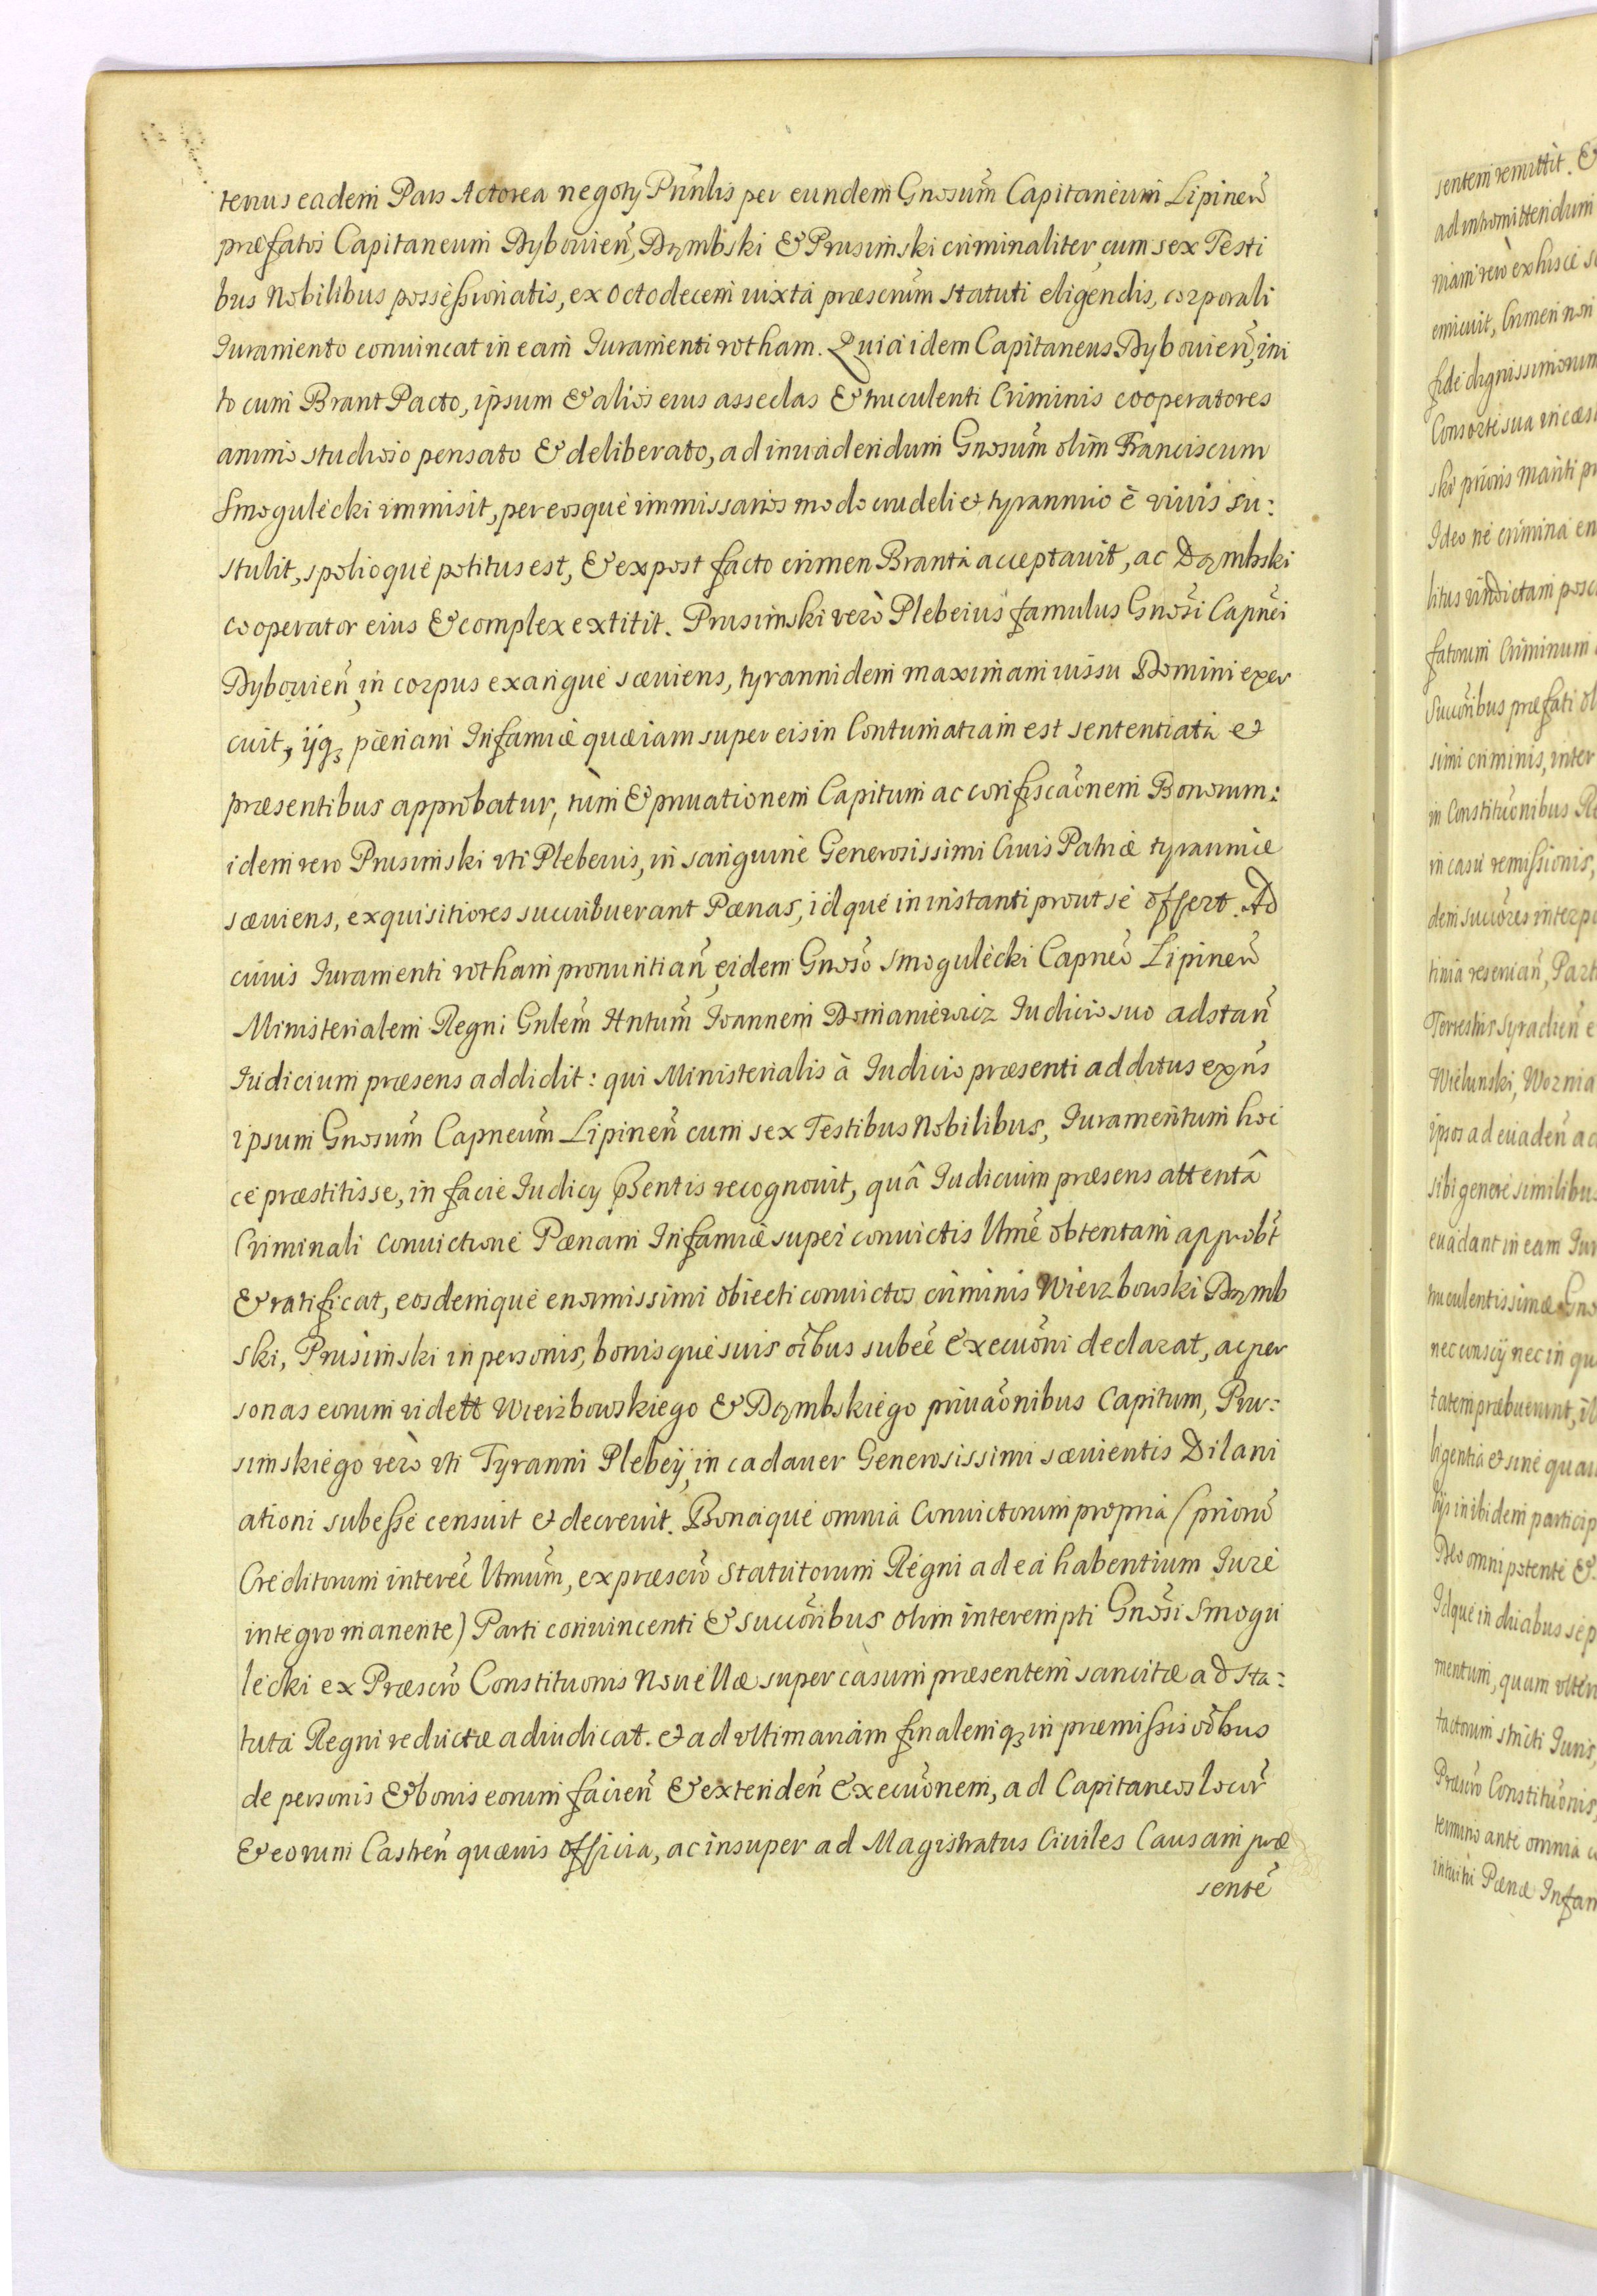 tenus eadem Pars Actorea negotÿ Pñnlis per eundem Gnosum̃ Capitaneum Lipineñ
præfatos Capitaneum Dybouieñ, Dąmbski & Prusimski criminaliter cum sex Testi
bus Nobilibus possessionatis, ex octodecem iuxta præscrum̃ Statuti eligendis, corporali
Iuramento conuincat in eam Iuramenti rotham. Quia idem Capitaneus Dybouieñ, ini
to cum Brant Pacto, ipsum & alios eius asseclas & truculenti Criminis cooperatores
animo studioso pensato & deliberato, ad inuadendum Gnosum̃ olim Franciscum
Smogulecki immisit, per eosque immissarios modo crudeli et tyrannico è viuis su:
stulit, spolioque potitus est, & ex post facto crimen Branta acceptauit, ac Dąmbski
cooperator eius & complex extitit. Prusimski verò Plebeius famulus Gnosi Capnei
Dybouieñ, in corpus exangue sæuiens, tyrannidem maximam iussu Domini exer
cuit, ijq3 pœnam Infamiæ quæ iam super eis in Contumatiam est sententiata et
præsentibus approbatur, tùm & priuationem Capitum ac confiscaõnem Bonorum:
idem vero Prusimski vti Plebeius, in sanguine Generosissimi Ciuis Patriæ tyrannice
sæuiens, exquisitiores succubuerant Pœnas, idque in instanti prout se offert. Ad
cuius Iuramenti rotham pronuntiañ, eidem Gnoso Smogulecki Capneo Lipineñ
Ministerialem Regni Gnlem̃ Hntum̃ Joannem Domaniewicz Iudicio suo adstañ
Iudicium præsens addidit: qui Ministerialis à Iudicio præsenti additus exñs
ipsum Gnosum̃ Capneum̃ Lipineñ cum sex Testibus Nobilibus, Iuramentum hoc
ce præstitisse, in facie Iudicÿ p̃sentis recognouit, quâ Iudicium præsens attentâ
Criminali conuictione Pœnam Infamiæ super conuictis Ultime obtentam approbt̃
& ratificat, eosdemque enormissimi obiecti conuictos criminis Wierzbowski Dąmb
ski, Prusimski in personis, bonisque suis oĩbus subeẽ Execuõni declarat, ac per
sonas eorum vidett Wierzbowskiego & Dąmbskiego priuaõnibus Capitum, Pru:
simskiego verò vti Tyranni Plebeÿ, in cadauer Generosissimi sæuientis Dilani
ationi subesse censuit et decreuit. Bonaque omnia Conuictorum propria (prioru͂
Creditorum intereẽ Utmum̃, ex præscro Statutorum Regni ad ea habentium Iure
integro manente) Parti conuincenti & succõribus olim interempti Gnosi Smogu
lecki ex Præscro Constituonis Nouellæ super casum præsentem sancitæ ad Sta:
tuta Regni reductæ adiudicat. et ad vltimariam finalemq3 in præmissis oĩbus
de personis & bonis eorum facieñ & extendeñ Execuõnem, ad Capitaneos locor̃
& eorum Castreñ quæuis officia, ac insuper ad Magistratus Ciuiles Causam præ
sentẽ
sentem remittit. &
ad intromittendum
niam verò ex hisce
emicuit, Crimen non
fide dignissimorum
Consorte sua in cæs
ski prioris mariti
Ideo ne crimina en
litus vindictam posc
fatorum Criminum
Succoribus præfati ol
simi criminis, inter
in Constituõnibus Re
in casu remissionis,
dem succores interp
tinia reseruañ, Part
Terrestris Syradieñ e
Wielunski, Woznia
ipsos ad euadeñ ac
sibi genere similibus
euadant in eam Iur
truculentissimæ Gno
nec conscÿ nec in qu
tatem præbuerunt,
ligentia et sine qua
ijs in ibidem particip
Deo omnipotente &
Idque in duabus sep
mentum, quam vlten
tactorum stricti Iuris,
Præscro Constituõnis,
termino ante omnia
intuitu Pœnæ Infam